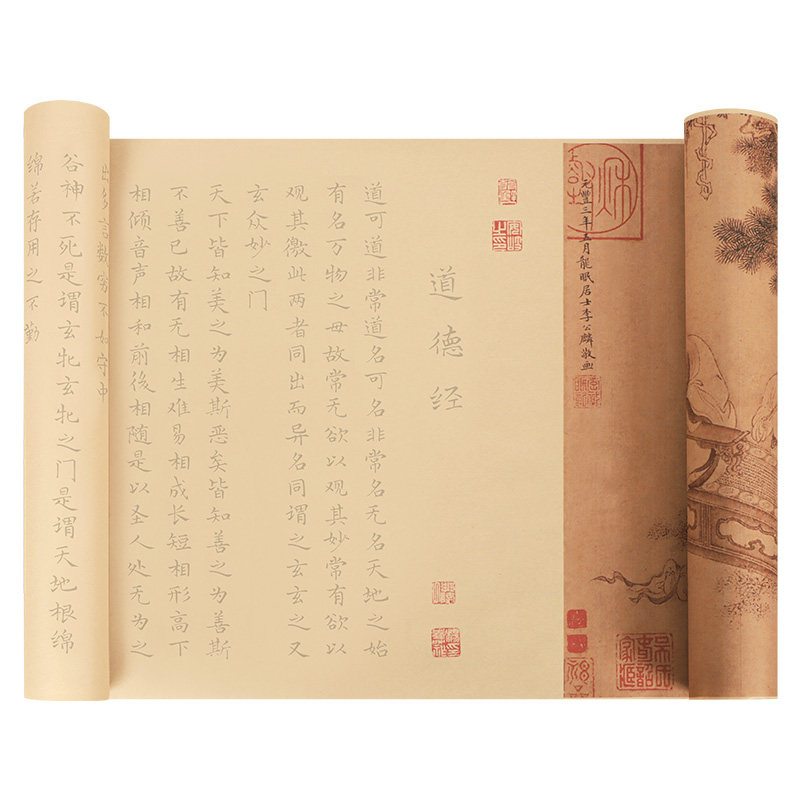 元豐三年五月龍眠居士李公麟敬畫
道德经
道可道非常道名可名非常名无名天地之始
有名万物之母故常无欲以观其妙常有欲以
观其徼此两者同出而异名同谓之玄玄之又
玄众妙之门
天下皆知美之为美斯恶矣皆知善之为善斯
不善已故有无相生难易相成长短相形高下
相倾音声相和前後相随是以圣人处无为之
出多言数穷不如守中
谷神不死是谓玄牝玄牝之门是谓天地根绵
绵若存用之不勤